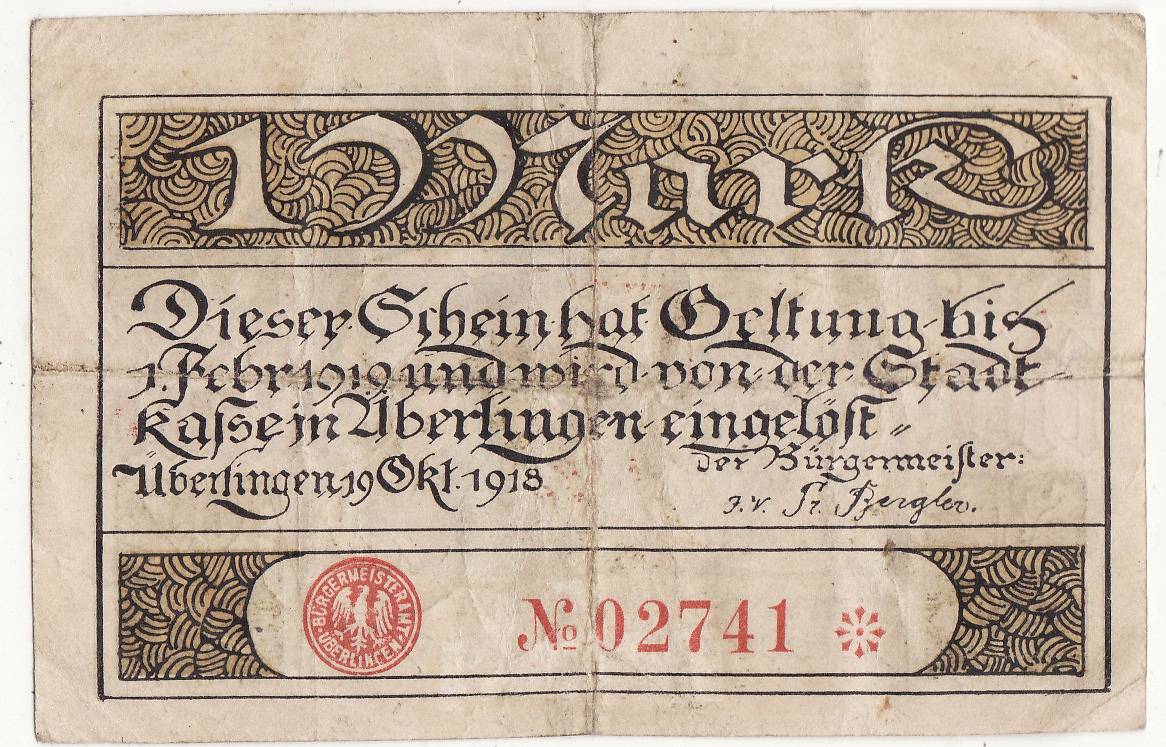 1 Mark
Dieser Schein hat Geltung bis
1. Febr 1919 und wird von der Stadt-
kasse in Überlingen eingelöst„
Überlingen 19 Okt. 1918
der Bürgermeister:
J. V. Fr. Bergler.
BÜRGERMEISTERAMT
ÜBERLINGEN
№ 02741